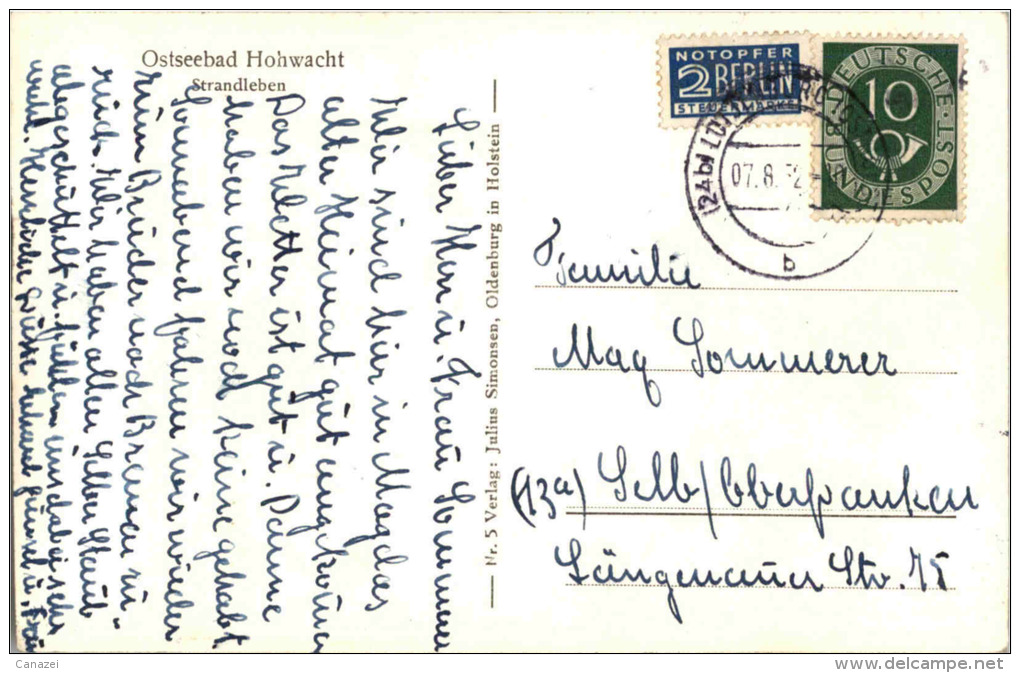 Ostseebad Hohwacht
Strandleben
Lieber Herr u. Frau Sommerer
Wir sind hier in Magdas
alten Heimat gut angekommen
Das Wetter ist gut u. Pänne
haben wir noch keine gehabt.
Sonnabend fahren wir wieder
zum Bruder nach Bremen zu
rück. Wir haben allen Selber Staub
abgeschüttelt u. fühlen uns dabei sehr
wohl. Herzliche Grüße
Nr. 5 Verlag: Julius Simonsen, Oldenburg in Holstein
NOTOPFER
2 BERLIN
STEUERMARKE
DEUTSCHE
BUNDESPOST
10
(24b)
07.8.52
b
Familie
Max Sommerer
(13a) Selb/Oberfranken
Längenauer Str. 75
Canazei
delcampe.net